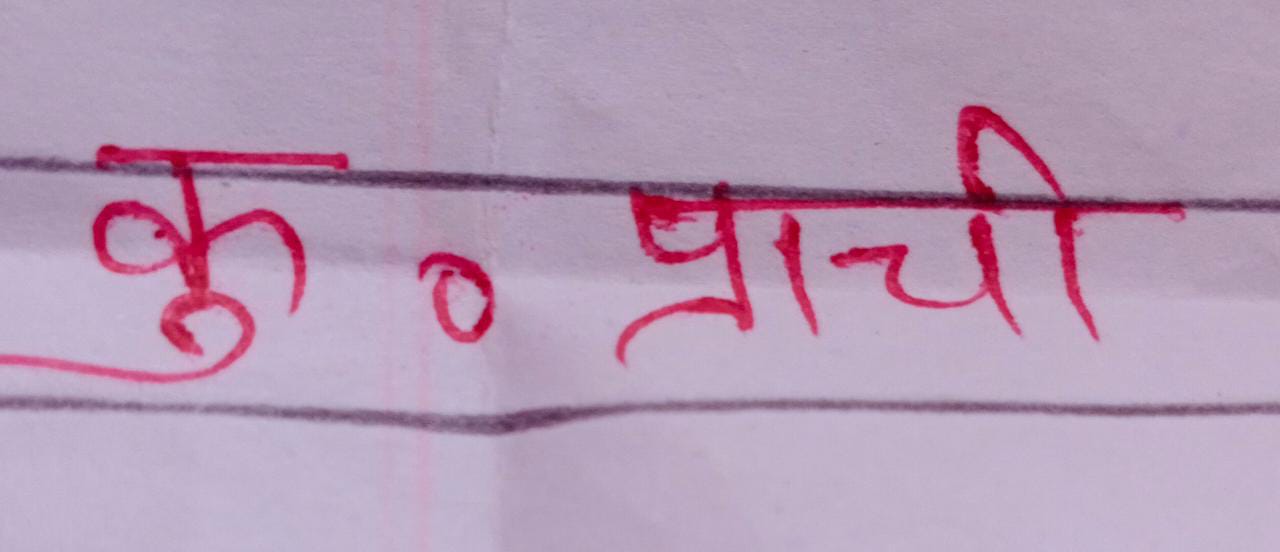 कु० प्राची